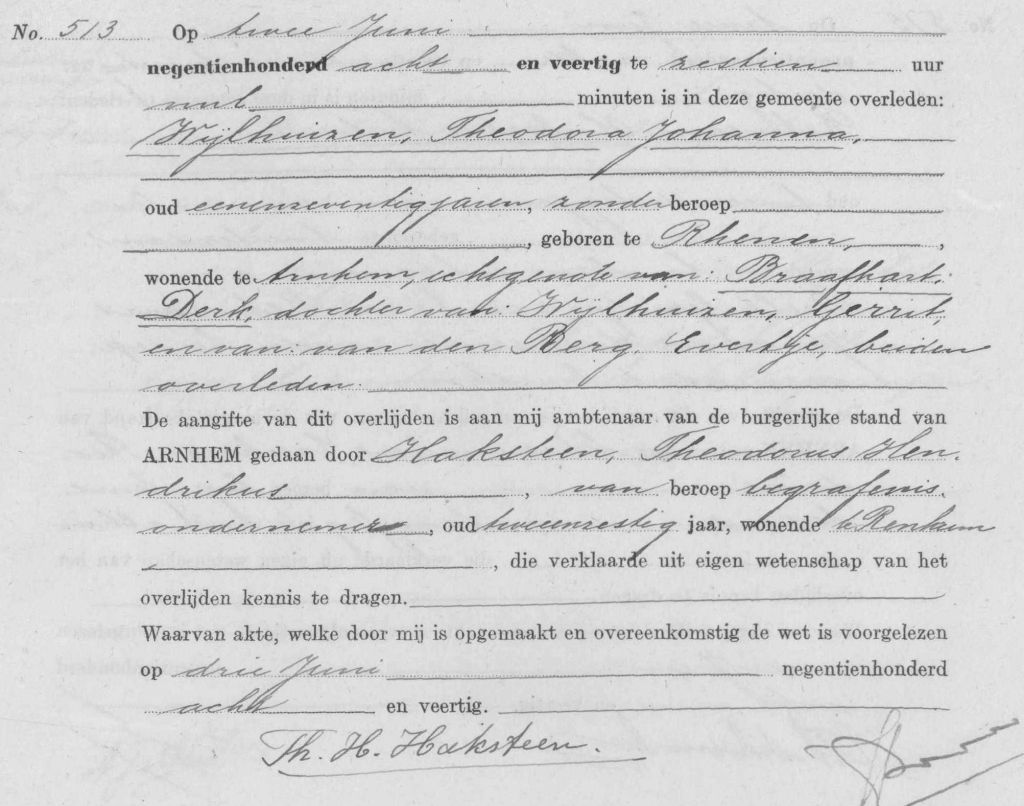 No. 513 Op twee Juni
negentienhonderd acht en veertig te zestien uur
nul minuten is in deze gemeente overleden:
Wijlhuizen, Theodora Johanna,
oud eenenzeventig jaren, zonder beroep
, geboren te Rhenen, ,
wonende te Arnhem, echtgenote van: Braafhart,
Derk, dochter van Wijlhuizen, Gerrit,
en van: van den Berg, Evertje, beiden
overleden.
De aangifte van dit overlijden is aan mij ambtenaar van de burgerlijke stand van
ARNHEM gedaan door Haksteen, Theodorus Hen-
drikus , van beroep begrafenis-
ondernemer , oud tweeenzestig jaar, wonende te Renkum
, die verklaarde uit eigen wetenschap van het
overlijden kennis te dragen.
Waarvan akte, welke door mij is opgemaakt en overeenkomstig de wet is voorgelezen
op drie Juni negentienhonderd
acht en veertig.
Th. H. Haksteen.